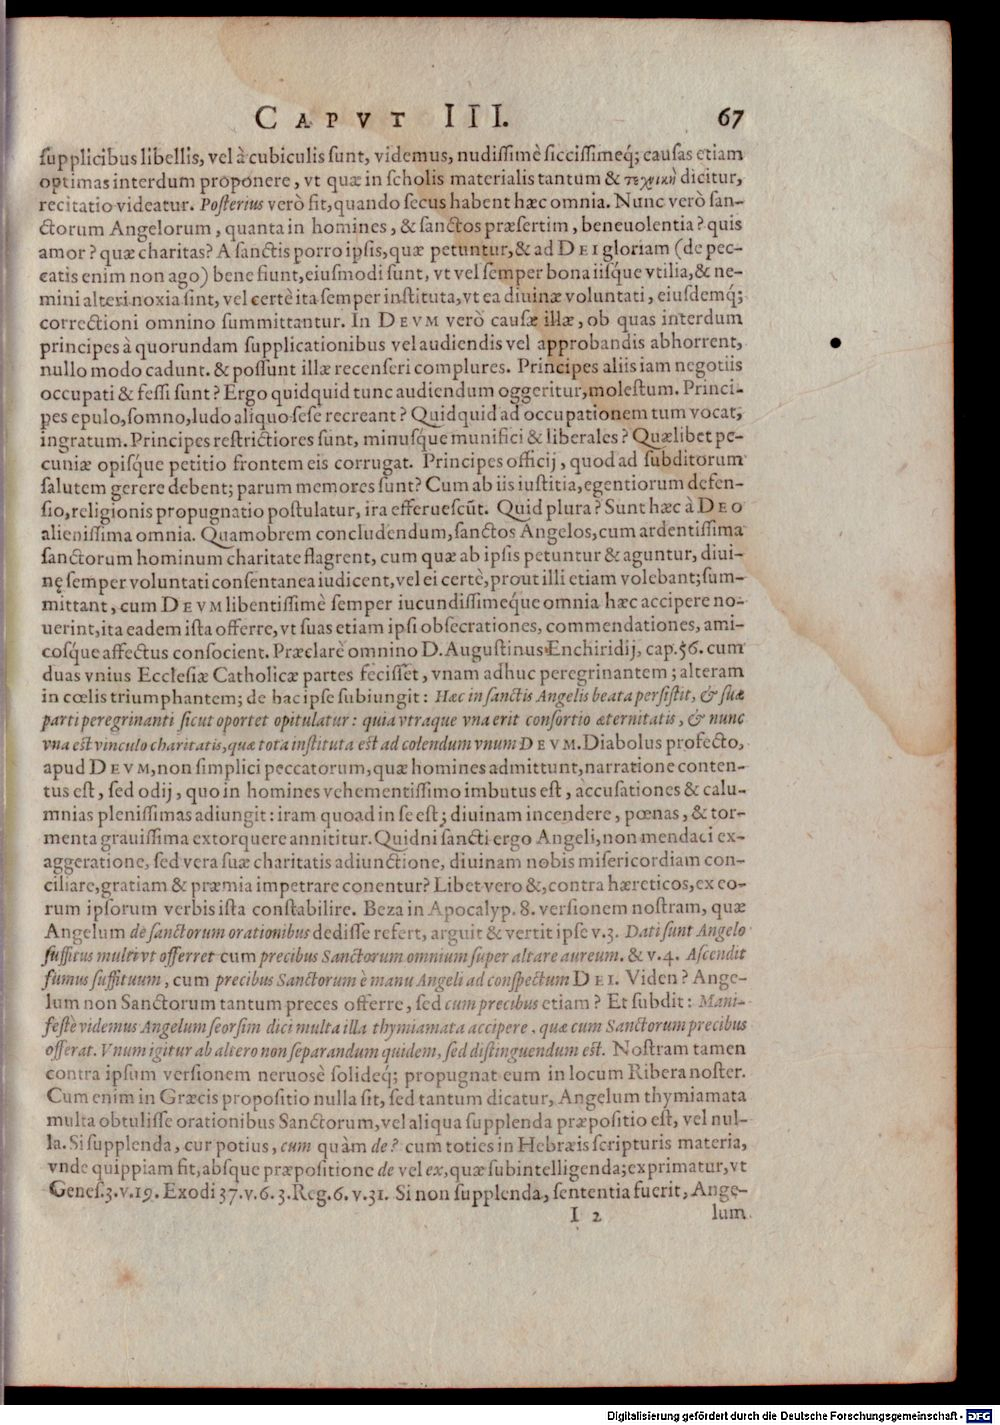 CAPVT III. 67
supplicibus libellis, vel à cubiculis sunt, videmus, nudissimè siccissimeq́; causas etiam
optimas interdum proponere, vt quæ in scholis materialis tantum & τεχνικὴ dicitur,
recitatio videatur. Posterius verò fit, quando secus habent hæc omnia. Nunc verò san-
ctorum Angelorum, quanta in homines, & sanctos præsertim, beneuolentia? quis
amor? quæ charitas? A sanctis porro ipsis, quæ petuntur, & ad DEI gloriam (de pec-
catis enim non ago) bene fiunt, eiusmodi sunt, vt vel semper bona iisque vtilia, & ne-
mini alteri noxia sint, vel certè ita semper instituta, vt ea diuinæ voluntati, eiusdemq́;
correctioni omnino summittantur. In DEVM verò causæ illæ, ob quas interdum
principes à quorundam supplicationibus vel audiendis vel approbandis abhorrent,
nullo modo cadunt. & possunt illæ recenseri complures. Principes aliis iam negotiis
occupati & fessi sunt? Ergo quidquid tunc audiendum oggeritur, molestum. Princi-
pes epulo, somno, ludo aliquo sese recreant? Quidquid ad occupationem tum vocat,
ingratum. Principes restrictiores sunt, minusque munifici & liberales? Quælibet pe-
cuniæ opisque petitio frontem eis corrugat. Principes officij, quod ad subditorum
salutem gerere debent; parum memores sunt? Cum ab iis iustitia, egentiorum defen-
sio, religionis propugnatio postulatur, ira efferuescũt. Quid plura? Sunt hæc à DEO
alienissima omnia. Quamobrem concludendum, sanctos Angelos, cum ardentissima
sanctorum hominum charitate flagrent, cum quæ ab ipsis petuntur & aguntur, diui-
nę semper voluntati consentanea iudicent, vel ei certè, prout illi etiam volebant; sum-
mittant, cum DEVM libentissimè semper iucundissimeque omnia hæc accipere no-
uerint, ita eadem ista offerre, vt suas etiam ipsi obsecrationes, commendationes, ami-
cosque affectus consocient. Præclarè omnino D. Augustinus Enchiridij, cap. 56. cum
duas vnius Ecclesiæ Catholicæ partes fecisset, vnam adhuc peregrinantem; alteram
in cœlis triumphantem; de hac ipse subiungit: Hæc in sanctis Angelis beata persistit, & suæ
parti peregrinanti sicut oportet opitulatur: quia vtraque vna erit consortio æternitatis, & nunc
vna est vinculo charitatis, quæ tota instituta est ad colendum vnum DEVM. Diabolus profecto,
apud DEVM, non simplici peccatorum, quæ homines admittunt, narratione conten-
tus est, sed odij, quo in homines vehementissimo imbutus est, accusationes & calu-
mnias plenissimas adiungit: iram quoad in se est; diuinam incendere, pœnas, & tor-
menta grauissima extorquere annititur. Quidni sancti ergo Angeli, non mendaci ex-
aggeratione, sed vera suæ charitatis adiunctione, diuinam nobis misericordiam con-
ciliare, gratiam & præmia impetrare conentur? Libet vero &, contra hæreticos, ex eo-
rum ipsorum verbis ista constabilire. Beza in Apocalyp. 8. versionem nostram, quæ
Angelum de sanctorum orationibus dedisse refert, arguit & vertit ipse v. 3. Dati sunt Angelo
suffitus multi vt offerret cum precibus Sanctorum omnium super altare aureum. & v. 4. Ascendit
fumus suffituum, cum precibus Sanctorum è manu Angeli ad conspectum DEI. Viden? Ange-
lum non Sanctorum tantum preces offerre, sed cum precibus etiam? Et subdit: Mani-
festè videmus Angelum seorsim dici multa illa thymiamata accipere, quæ cum Sanctorum precibus
offerat. Vnum igitur ab altero non separandum quidem, sed distinguendum est. Nostram tamen
contra ipsum versionem neruosè solideq́; propugnat eum in locum Ribera noster.
Cum enim in Græcis propositio nulla sit, sed tantum dicatur, Angelum thymiamata
multa obtulisse orationibus Sanctorum, vel aliqua supplenda præpositio est, vel nul-
la. Si supplenda, cur potius, cum quàm de? cum toties in Hebræis scripturis materia,
vnde quippiam fit, absque præpositione de vel ex, quæ subintelligenda; exprimatur, vt
Genes. 3. v. 19. Exodi 37. v. 6. 3. Reg. 6. v. 31. Si non supplenda, sententia fuerit, Ange-
I 2 lum
Digitalisierung gefördert durch die Deutsche Forschungsgemeinschaft - DFG